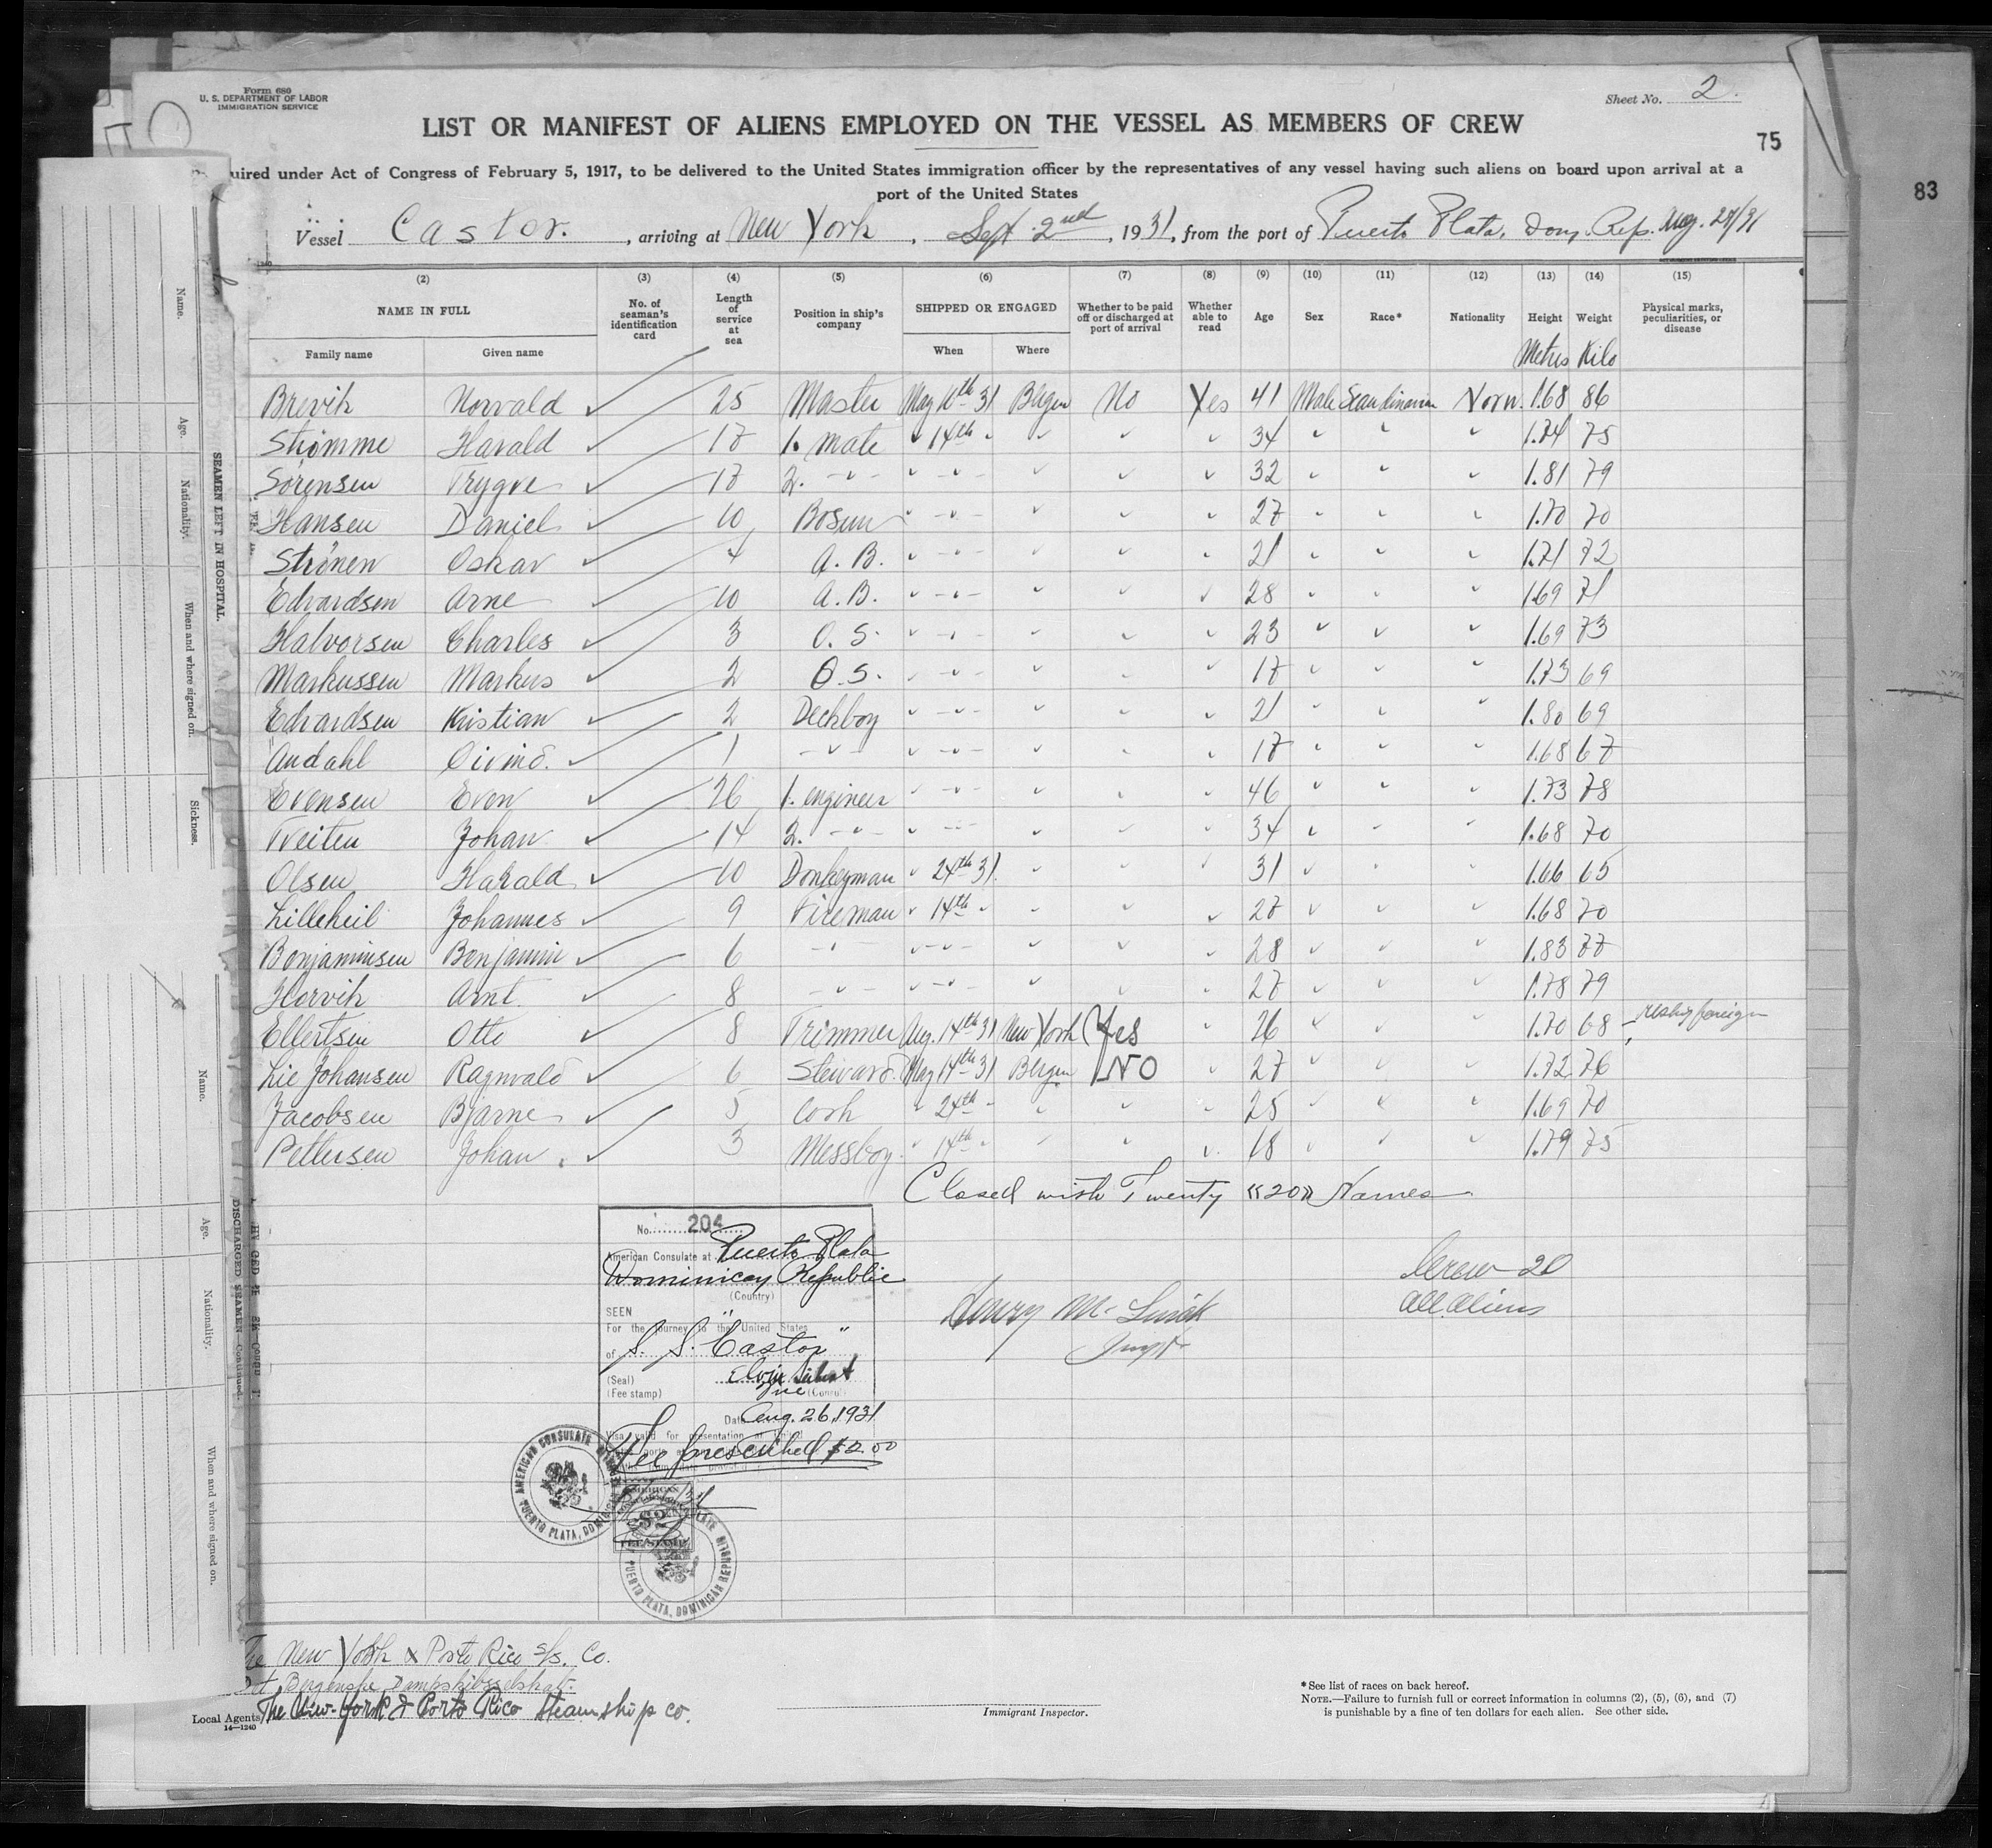 Form 680
U. S. DEPARTMENT OF LABOR
IMMIGRATION SERVICE
Sheet No. 2.
LIST OR MANIFEST OF ALIENS EMPLOYED ON THE VESSEL AS MEMBERS OF CREW
75
83
uired under Act of Congress of February 5, 1917, to be delivered to the United States immigration officer by the representatives of any vessel having such aliens on board upon arrival at a
port of the United States
Vessel Castor. , arriving at New York , Sept 2nd , 1931, from the port of Puerto Plata, Dom. Rep. Aug. 27/31
(2) (3) (4) (5) (6) (7) (8) (9) (10) (11) (12) (13) (14) (15)
NAME IN FULL Family name Given name No. of seaman's identification card Length of service at sea Position in ship's company SHIPPED OR ENGAGED When Where Whether to be paid off or discharged at port of arrival Whether able to read Age Sex Race* Nationality Height Weight Physical marks, peculiarities, or disease
Metres Kilo
Brevik Norvald ✓ 25 Master May 10th 31 Bergen No Yes 41 Male Scandinavian Norw. 1.68 86
Strømme Harald ✓ 17 1. mate " 14th " " " " 34 " " " 1.74 75
Sörensen Trygve ✓ 17 2. -"- " -"- " " " 32 " " " 1.81 79
Hansen Daniel ✓ 10 Bosun " -"- " " " 27 " " " 1.70 70
Strönen Oskar ✓ 4 A. B. " -"- " " " 21 " " " 1.71 72
Edvardsen Arne ✓ 10 A. B. " -"- " " " 28 " " " 1.69 71
Halvorsen Charles ✓ 3 O. S. " -"- " " " 23 " " " 1.69 73
Markussen Markus ✓ 2 O. S. " -"- " " " 17 " " " 1.73 69
Edvardsen Kristian ✓ 2 Deckboy " -"- " " " 21 " " " 1.80 69
Andahl Oivind. ✓ 1 -"- " -"- " " " 17 " " " 1.68 67
Evensen Even ✓ 26 1. engineer " -"- " " " 46 " " " 1.73 78
Tveiten Johan ✓ 14 2. -"- " -"- " " " 34 " " " 1.68 70
Olsen Harald ✓ 10 Donkeyman " 24th 31. " " " 31 " " " 1.66 65
Lilleheil Johannes ✓ 9 Fireman " 14th " " " " 27 " " " 1.68 70
Benjaminsen Benjamin ✓ 6 -"- " -"- " " " 28 " " " 1.83 77
Horvik Arnt. ✓ 8 -"- " -"- " " " 27 " " " 1.78 79
Ellertsen Otto ✓ 8 Trimmer Aug. 14th 31 New York Yes " 26 " " " 1.70 68 reship foreign
Lie Johansen Ragnvald ✓ 6 Steward. May 14th 31 Bergen No " 27 " " " 1.72 76
Jacobsen Bjarne ✓ 5 Cook " 24th " " " " 25 " " " 1.69 70
Pettersen Johan. ✓ 3 Messboy. " 14th " " " " 18 " " " 1.79 75
Closed with Twenty «20» Names
No. 204
American Consulate at Puerto Plata
Dominican Republic
(Country)
SEEN
For the journey to the United States
of S. S. "Castor"
(Seal)
(Fee stamp)
Vice (Consul)
Date Aug. 26, 1931
Fee prescribed $2.00
AMERICAN CONSULATE
PUERTO PLATA, DOMINICAN REPUBLIC
AMERICAN
$2
FEE STAMP
PUERTO PLATA, DOMINICAN REPUBLIC
Crew 20
All Aliens
Henry M.
Inspt.
The New York & Porto Rico S/S. Co.
Det Bergenske Dampskibsselskab.
Local Agents The New-York & Porto Rico Steamship co.
14—1240
Immigrant Inspector.
*See list of races on back hereof.
NOTE.—Failure to furnish full or correct information in columns (2), (5), (6), and (7)
is punishable by a fine of ten dollars for each alien. See other side.
Name.
Age.
Nationality.
When and where signed on.
Sickness.
SEAMEN LEFT IN HOSPITAL.
Name.
Age.
Nationality.
When and where signed on.
DISCHARGED SEAMEN—Continued.